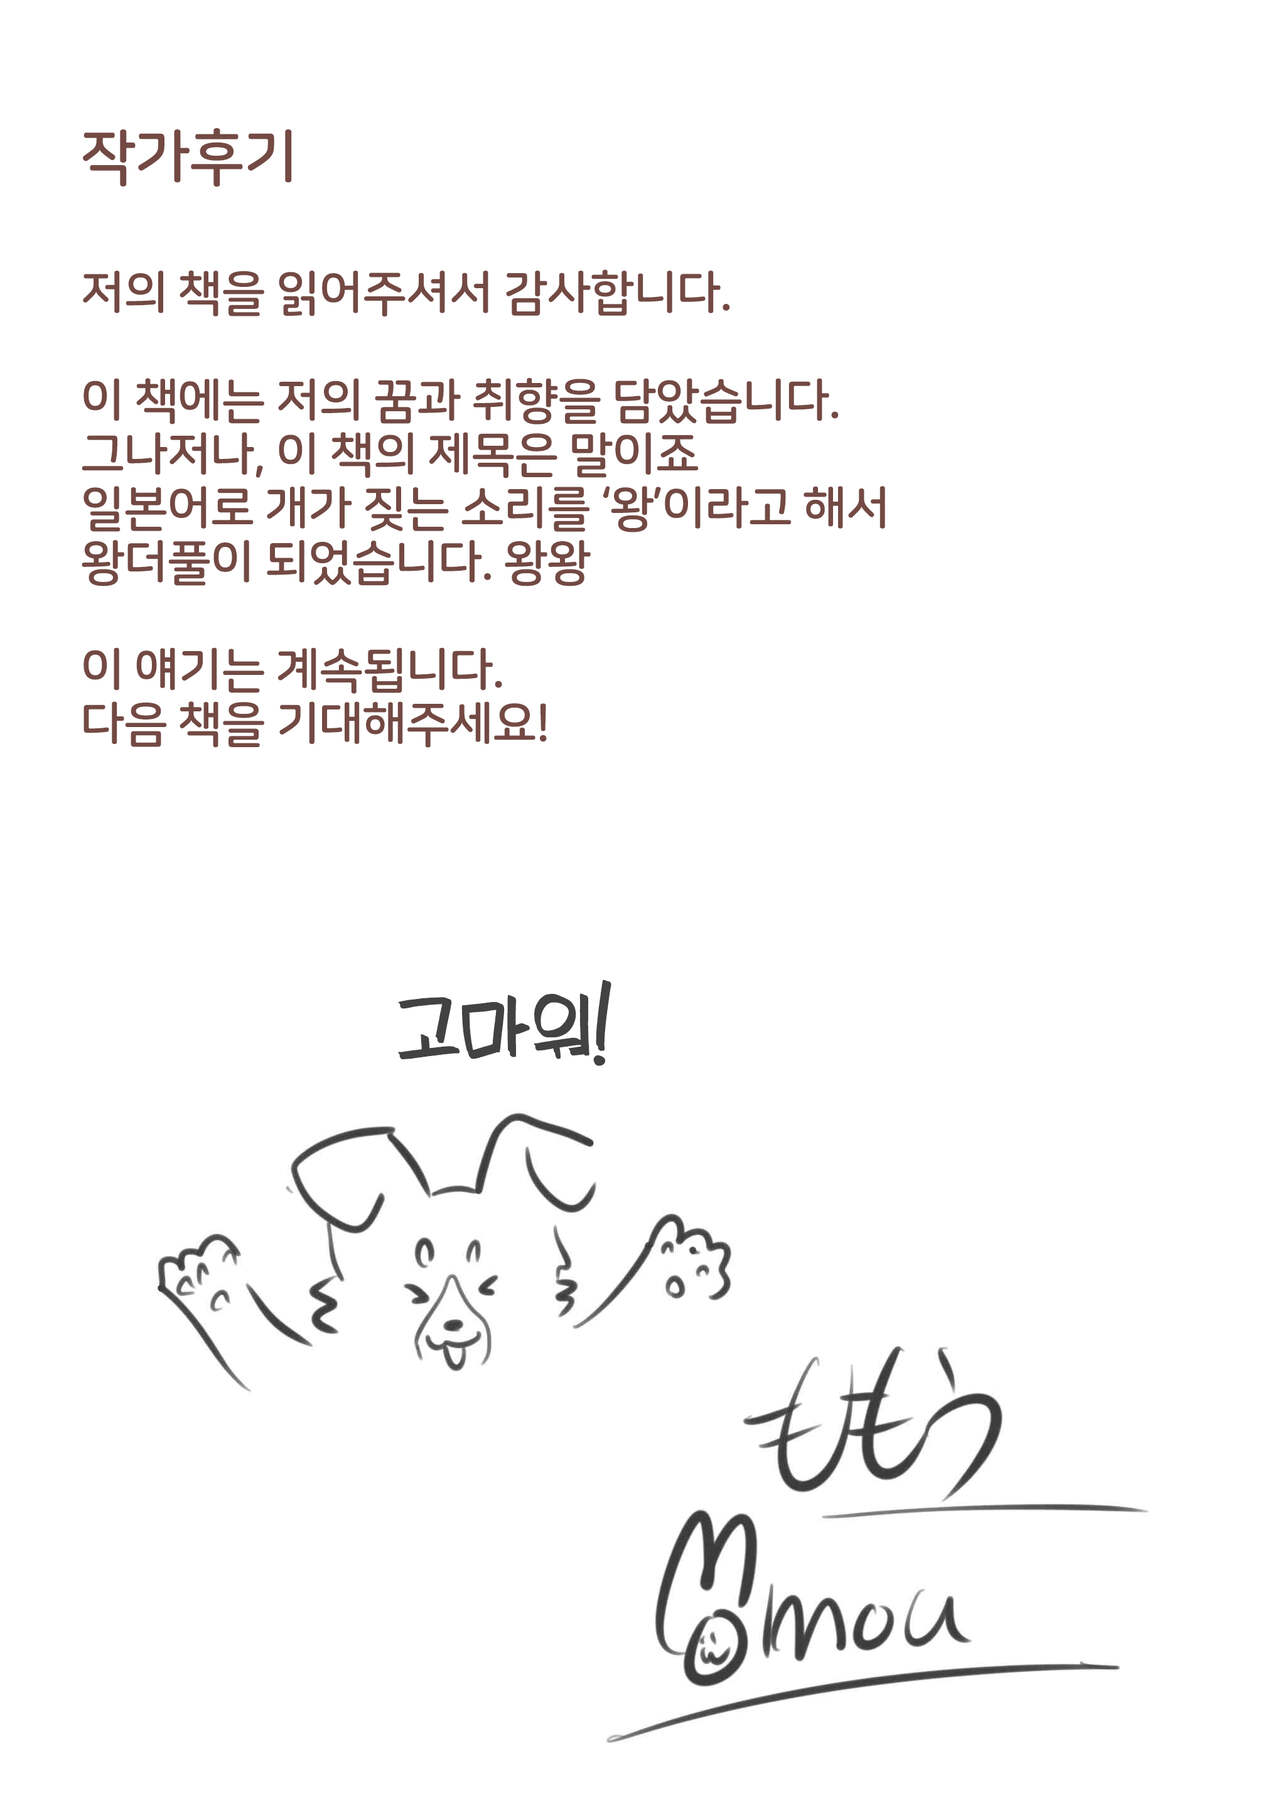 작가후기
저의 책을 읽어주셔서 감사합니다.
이 책에는 저의 꿈과 취향을 담았습니다.
그나저나, 이 책의 제목은 말이죠
일본어로 개가 짖는 소리를 ‘왕’이라고 해서
왕더풀이 되었습니다. 왕왕
이 얘기는 계속됩니다.
다음 책을 기대해주세요!
고마워!
ももう
Momou